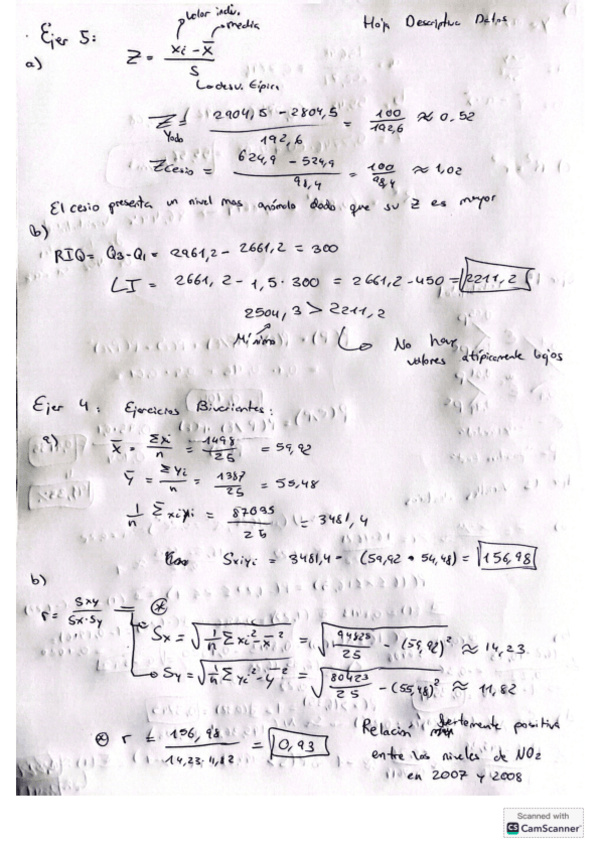 valor indiv.
Hoja Descriptiva Datos
· Ejer 5:
media
a)
Z = xi - x̄ / S
desv. típica
Z Yodo = 2904,5 - 2804,5 / 192,6 = 100 / 192,6 ≈ 0,52
Z cesio = 624,9 - 524,9 / 98,4 = 100 / 98,4 ≈ 1,02
El cesio presenta un nivel mas anómalo dado que su Z es mayor
b)
RIQ = Q3 - Q1 = 2961,2 - 2661,2 = 300
LI = 2661,2 - 1,5 · 300 = 2661,2 - 450 = 2211,2
2504,3 > 2211,2
Mínimo
No hay
valores atípicamente bajos
Ejer 4: Ejercicios Bivariantes:
a)
x̄ = Σxi / n = 1498 / 25 = 59,92
ȳ = Σyi / n = 1387 / 25 = 55,48
1/n Σ xiyi = 87035 / 25 = 3481,4
Sxiyi = 3481,4 - (59,92 · 54,48) = 156,98
b)
r = Sxy / Sx·Sy = ⊛
Sx = √(1/n Σxi² - x̄²) = √(94825 / 25 - (59,92)²) ≈ 14,23
Sy = √(1/n Σyi² - ȳ²) = √(80423 / 25 - (55,48)²) ≈ 11,82
⊛ r = 156,98 / 14,23 · 11,82 = 0,93
Relación fuertemente positiva
entre los niveles de NO2
en 2007 y 2008
Scanned with
CS CamScanner